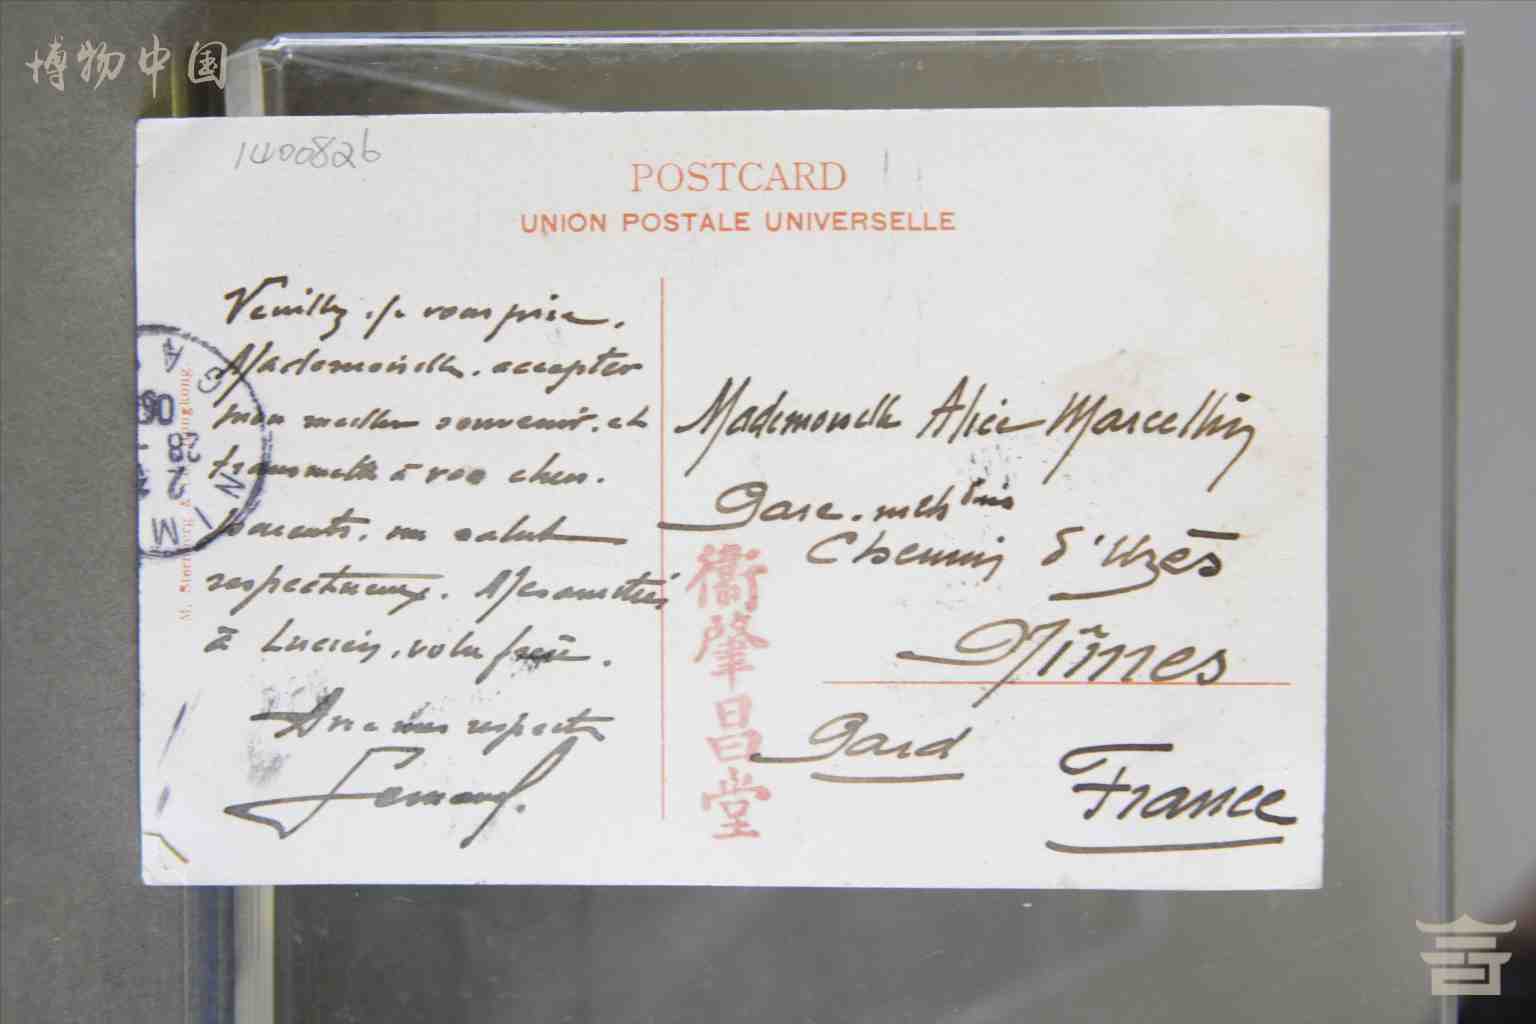 博物中国
1400826
POSTCARD
UNION POSTALE UNIVERSELLE
Veuillez je vous prie.
Mademoiselle. accepter
mon meilleur souvenir. et
transmettre à vos chers.
parents. mon salut
respectueux. Mes amitiés
à Lucien. votre frère.
Avec mes respects
Fernand.
Mademoiselle Alice Marcellin
Gare.
Chemin d'Uzès
Nîmes
Gard
France
衞肇昌堂
M. Sternberg Hongkong.